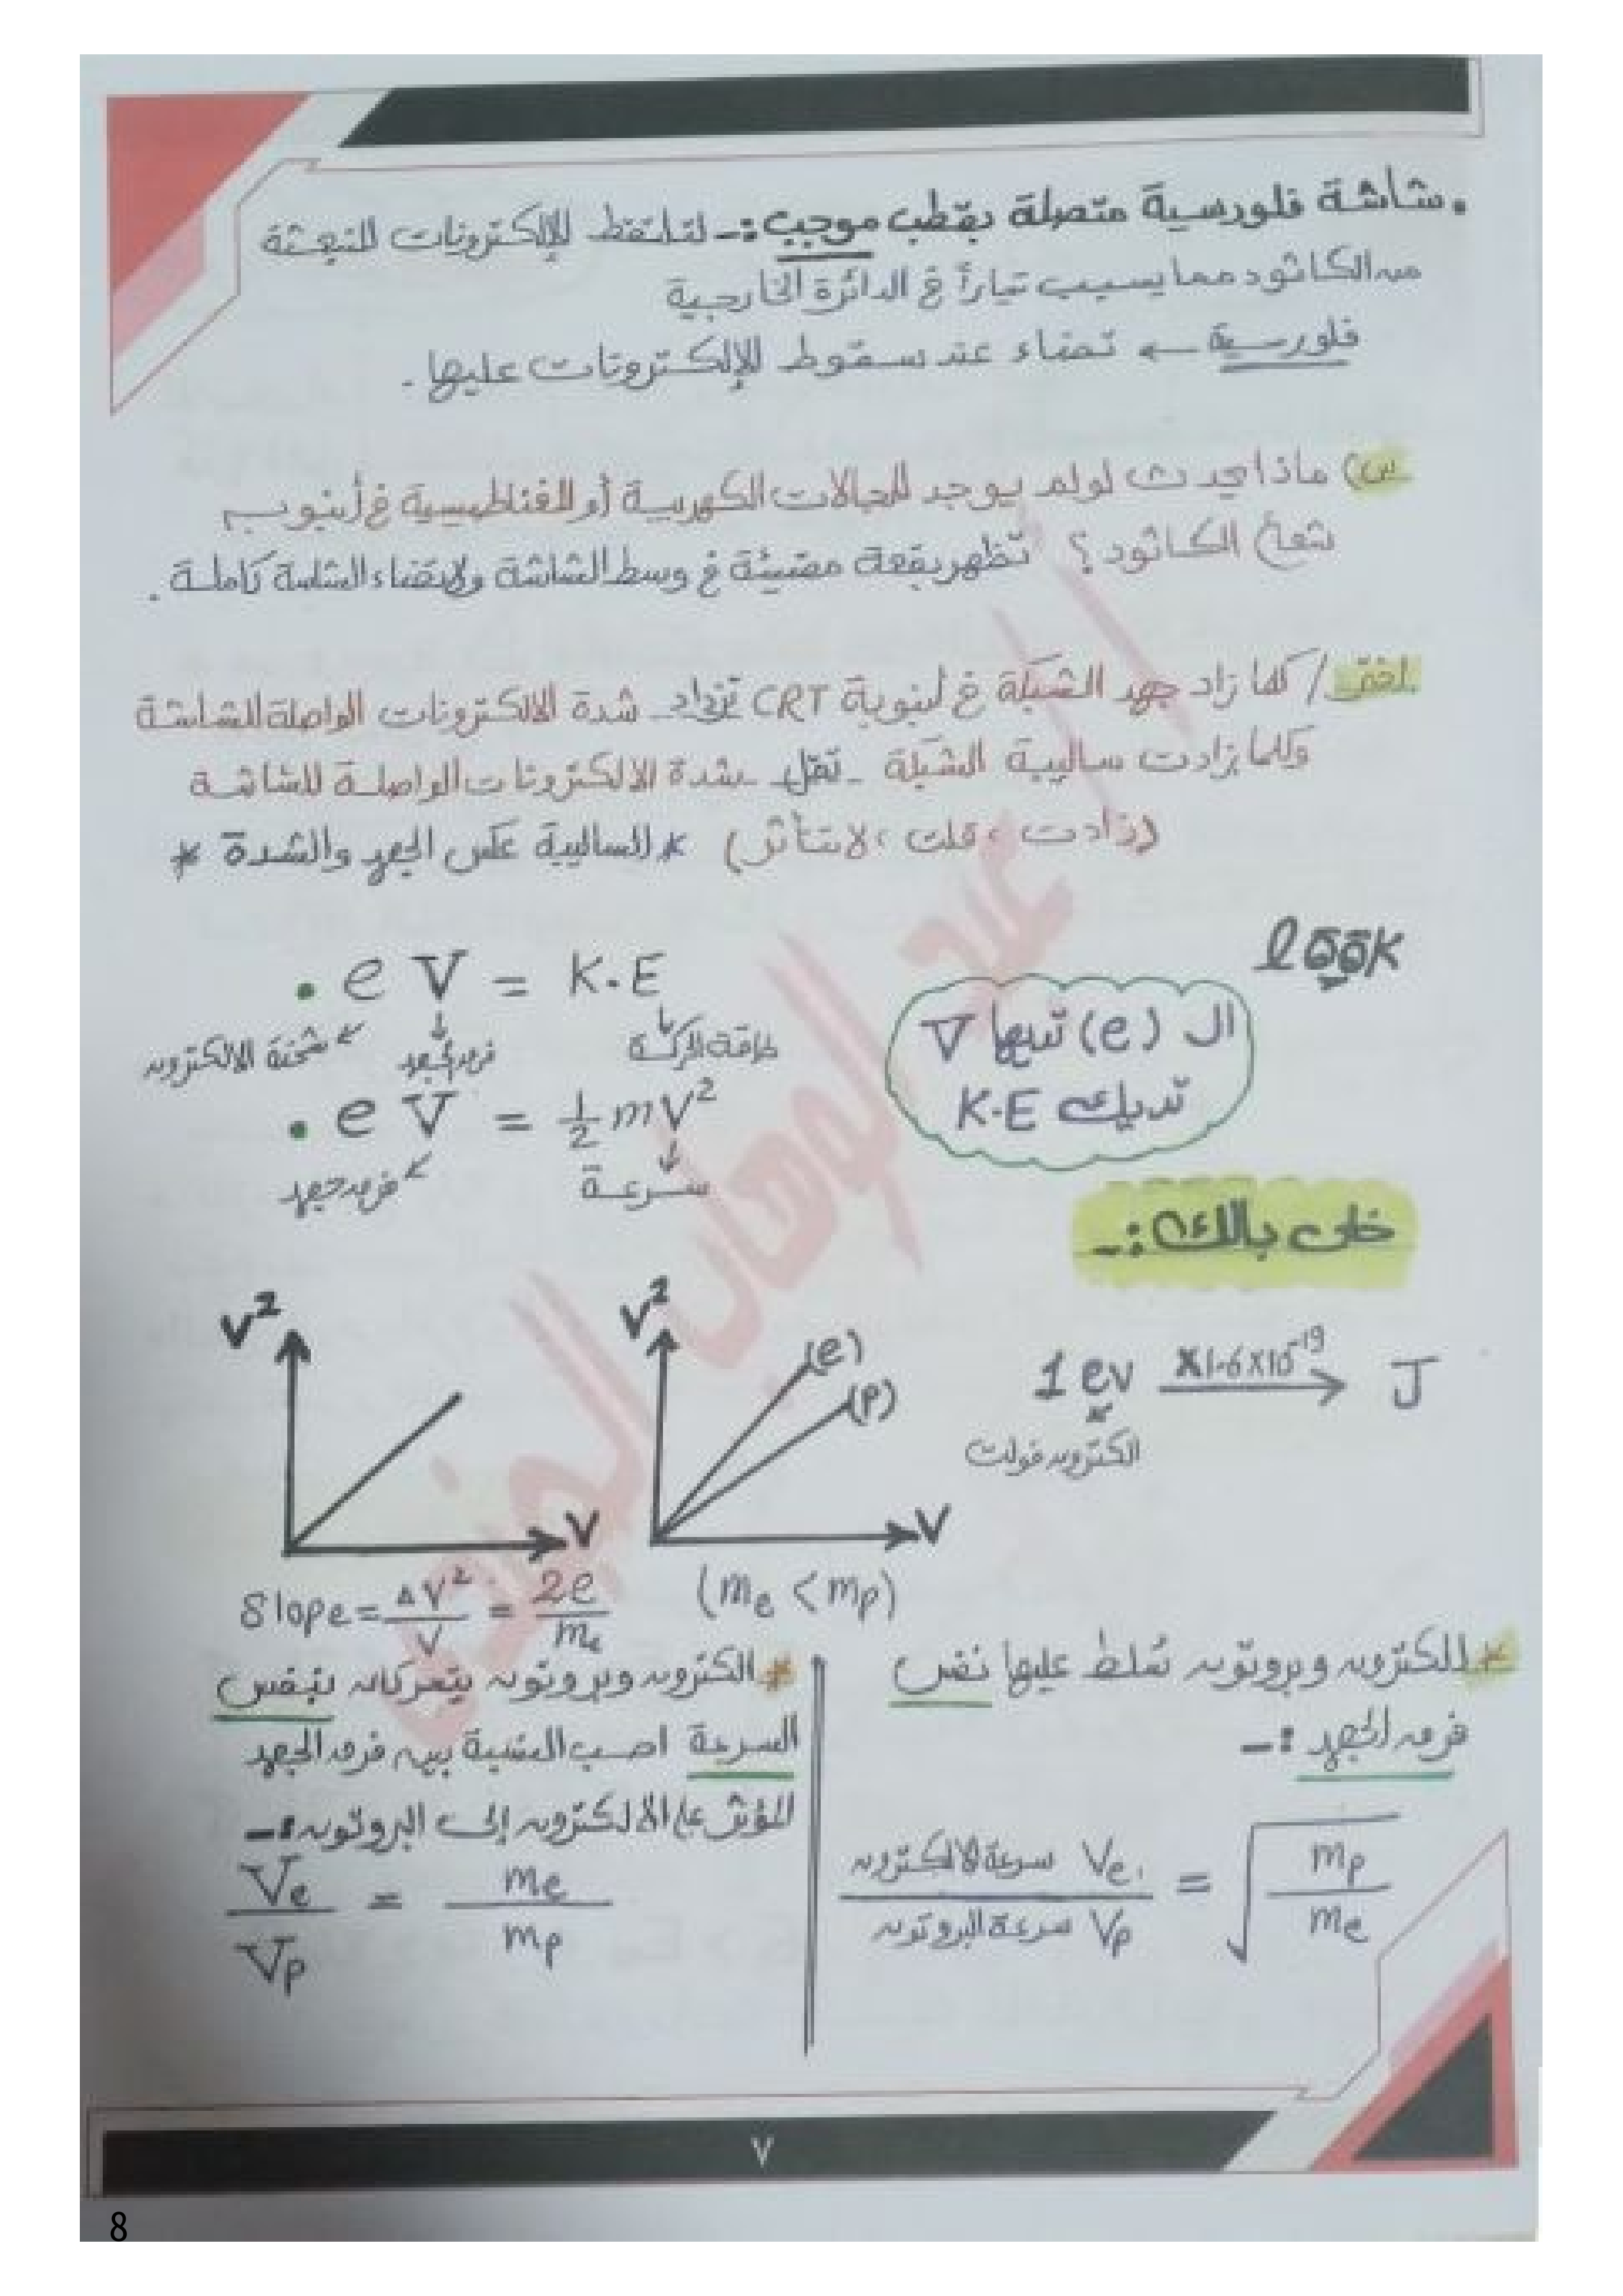 . شاشة فلورسية متصلة بقطب موجب :- لتلتقط الإلكترونات المنبعثة
من الكاثود مما يسبب تياراً في الدائرة الخارجية
فلورسية ← تضاء عند سقوط الإلكترونات عليها .
س) ماذا يحدث لو لم يوجد المجالات الكهربية أو المغناطيسية في أنبوب
شعاع الكاثود ؟ تظهر بقعة مضيئة في وسط الشاشة ولا تضاء الشاشة كاملة .
اختر / كلما زاد جهد الشبكة في أنبوبة CRT تزداد شدة الالكترونات الواصلة للشاشة
وكلما زادت سالبية الشبكة - تقل - شدة الالكترونات الواصلة للشاشة
(زادت ، قلت ، لا تتأثر) * السالبية عكس الجهد والشدة *
look
• e V = K.E
شحنة الالكترون فرق الجهد طاقة الحركة
ال (e) تديها V
تديك K.E
• e V = 1/2 mV²
فرق جهد سرعة
خلى بالك :-
V² V
V² (e) (P) V
1 ev ×1.6×10⁻¹⁹ → J
الكترون فولت
Slope = ΔV²/V = 2e/me
(me < mp)
* الكترون وبروتون سُلط عليها نفس
فرق الجهد :-
سرعة الالكترون Ve / سرعة البروتون Vp = √(mp/me)
* الكترون وبروتون يتحركان بنفس
السرعة احسب النسبة بين فرق الجهد
المؤثر على الالكترون إلى البروتون :-
Ve/Vp = me/mp
عبد الوهاب
٧
8